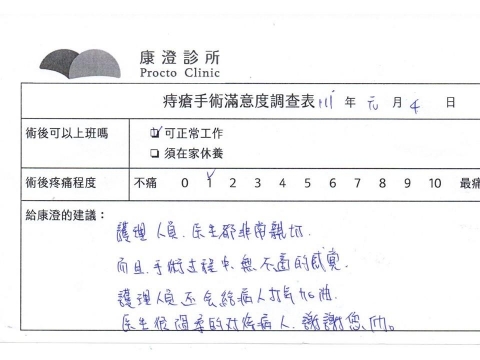 康澄診所
Procto Clinic
痔瘡手術滿意度調查表 111 年 元 月 4 日
術後可以上班嗎
☑ 可正常工作
□ 須在家休養
術後疼痛程度 不痛 0 1 2 3 4 5 6 7 8 9 10 最痛
給康澄的建議：
護理人員、医生都非常親切.
而且手術过程中無不適的感覺.
護理人員还会給病人打氣加油.
医生很溫柔的对待病人,謝謝您们。